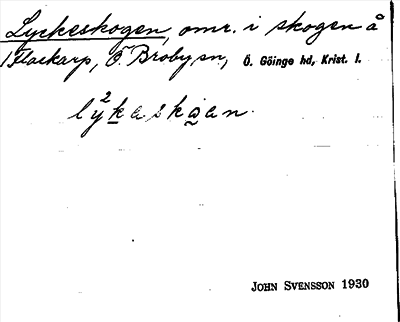 Lyckeskogen, omr. i skogen å
1 Flackarp, Ö. Broby sn, Ö. Göinge hd, Krist. l.
lý²kaskọan.
JOHN SVENSSON 1930